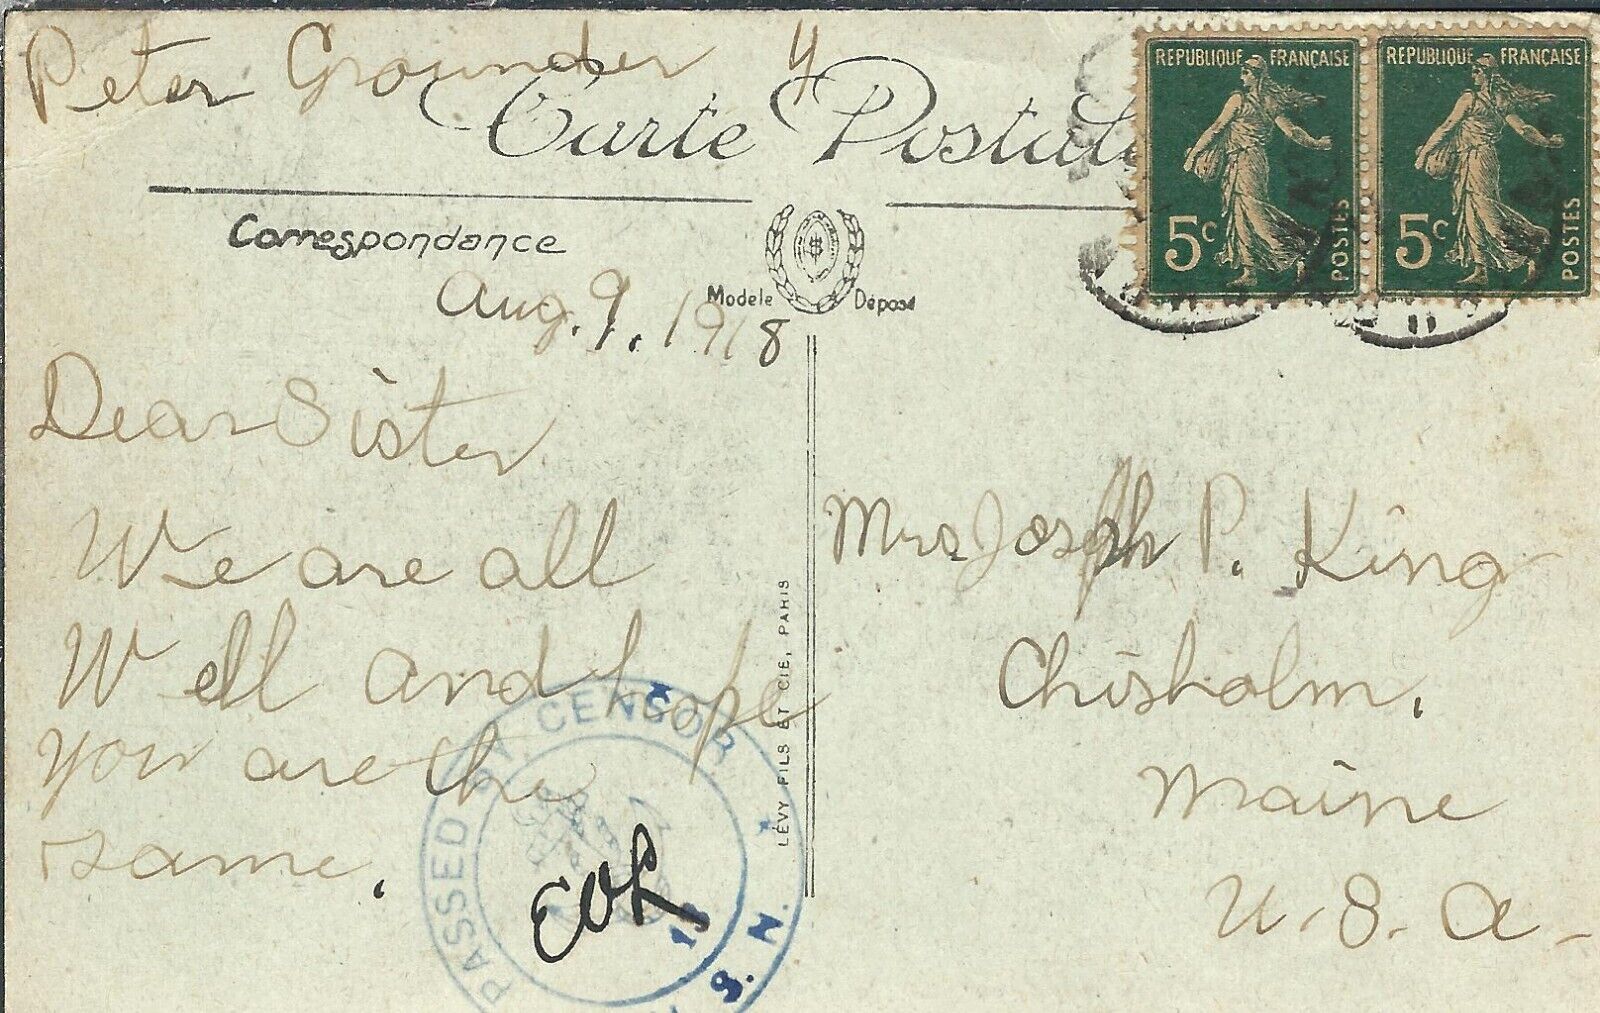 Peter Grounder y
Carte Postale
RÉPUBLIQUE FRANÇAISE
5c
POSTES
RÉPUBLIQUE FRANÇAISE
5c
POSTES
Correspondance
Modèle Déposé
Aug. 9. 1918
Dear Sister
We are all
Well and hope
you are the
same.
Mrs Joseph P. King
Chisholm.
Maine
U. S. A.
LÉVY FILS ET CIE, PARIS
PASSED BY CENSOR
S. N.
EOL